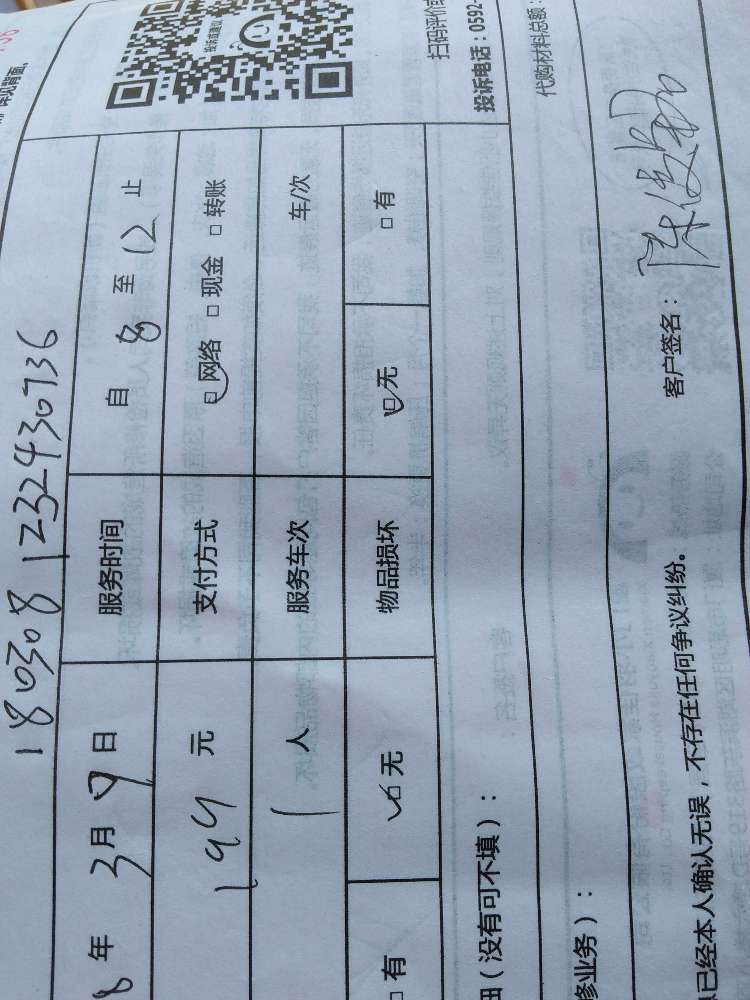 180308 123243 0736
8年 3月9日 服务时间 自 8 至 12 止
199元 支付方式 □网络 □现金 □转账
1人 服务车次 车/次
□有 □无 物品损坏 □无 □有
投诉或建议
扫码评价或
投诉电话：0592-
（没有可不填）：
代购材料总额：
修业务）：
已经本人确认无误，不存在任何争议纠纷。 客户签名：
详见背面，